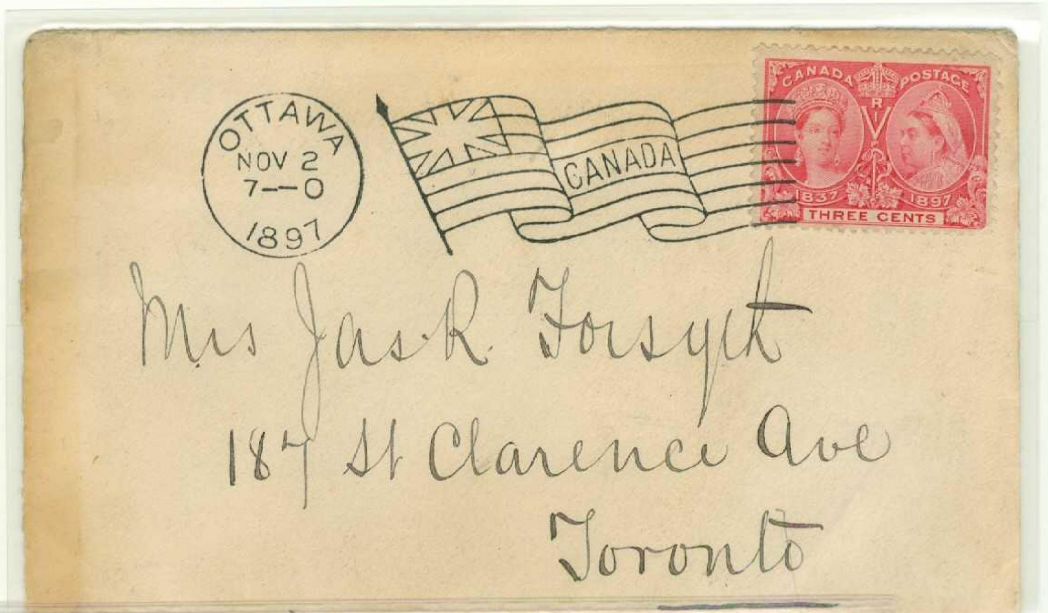 OTTAWA
NOV 2
7--0
1897
CANADA
CANADA POSTAGE
V R I
1837 1897
THREE CENTS
Mrs Jas. R. Forsyth
187 St Clarence Ave
Toronto